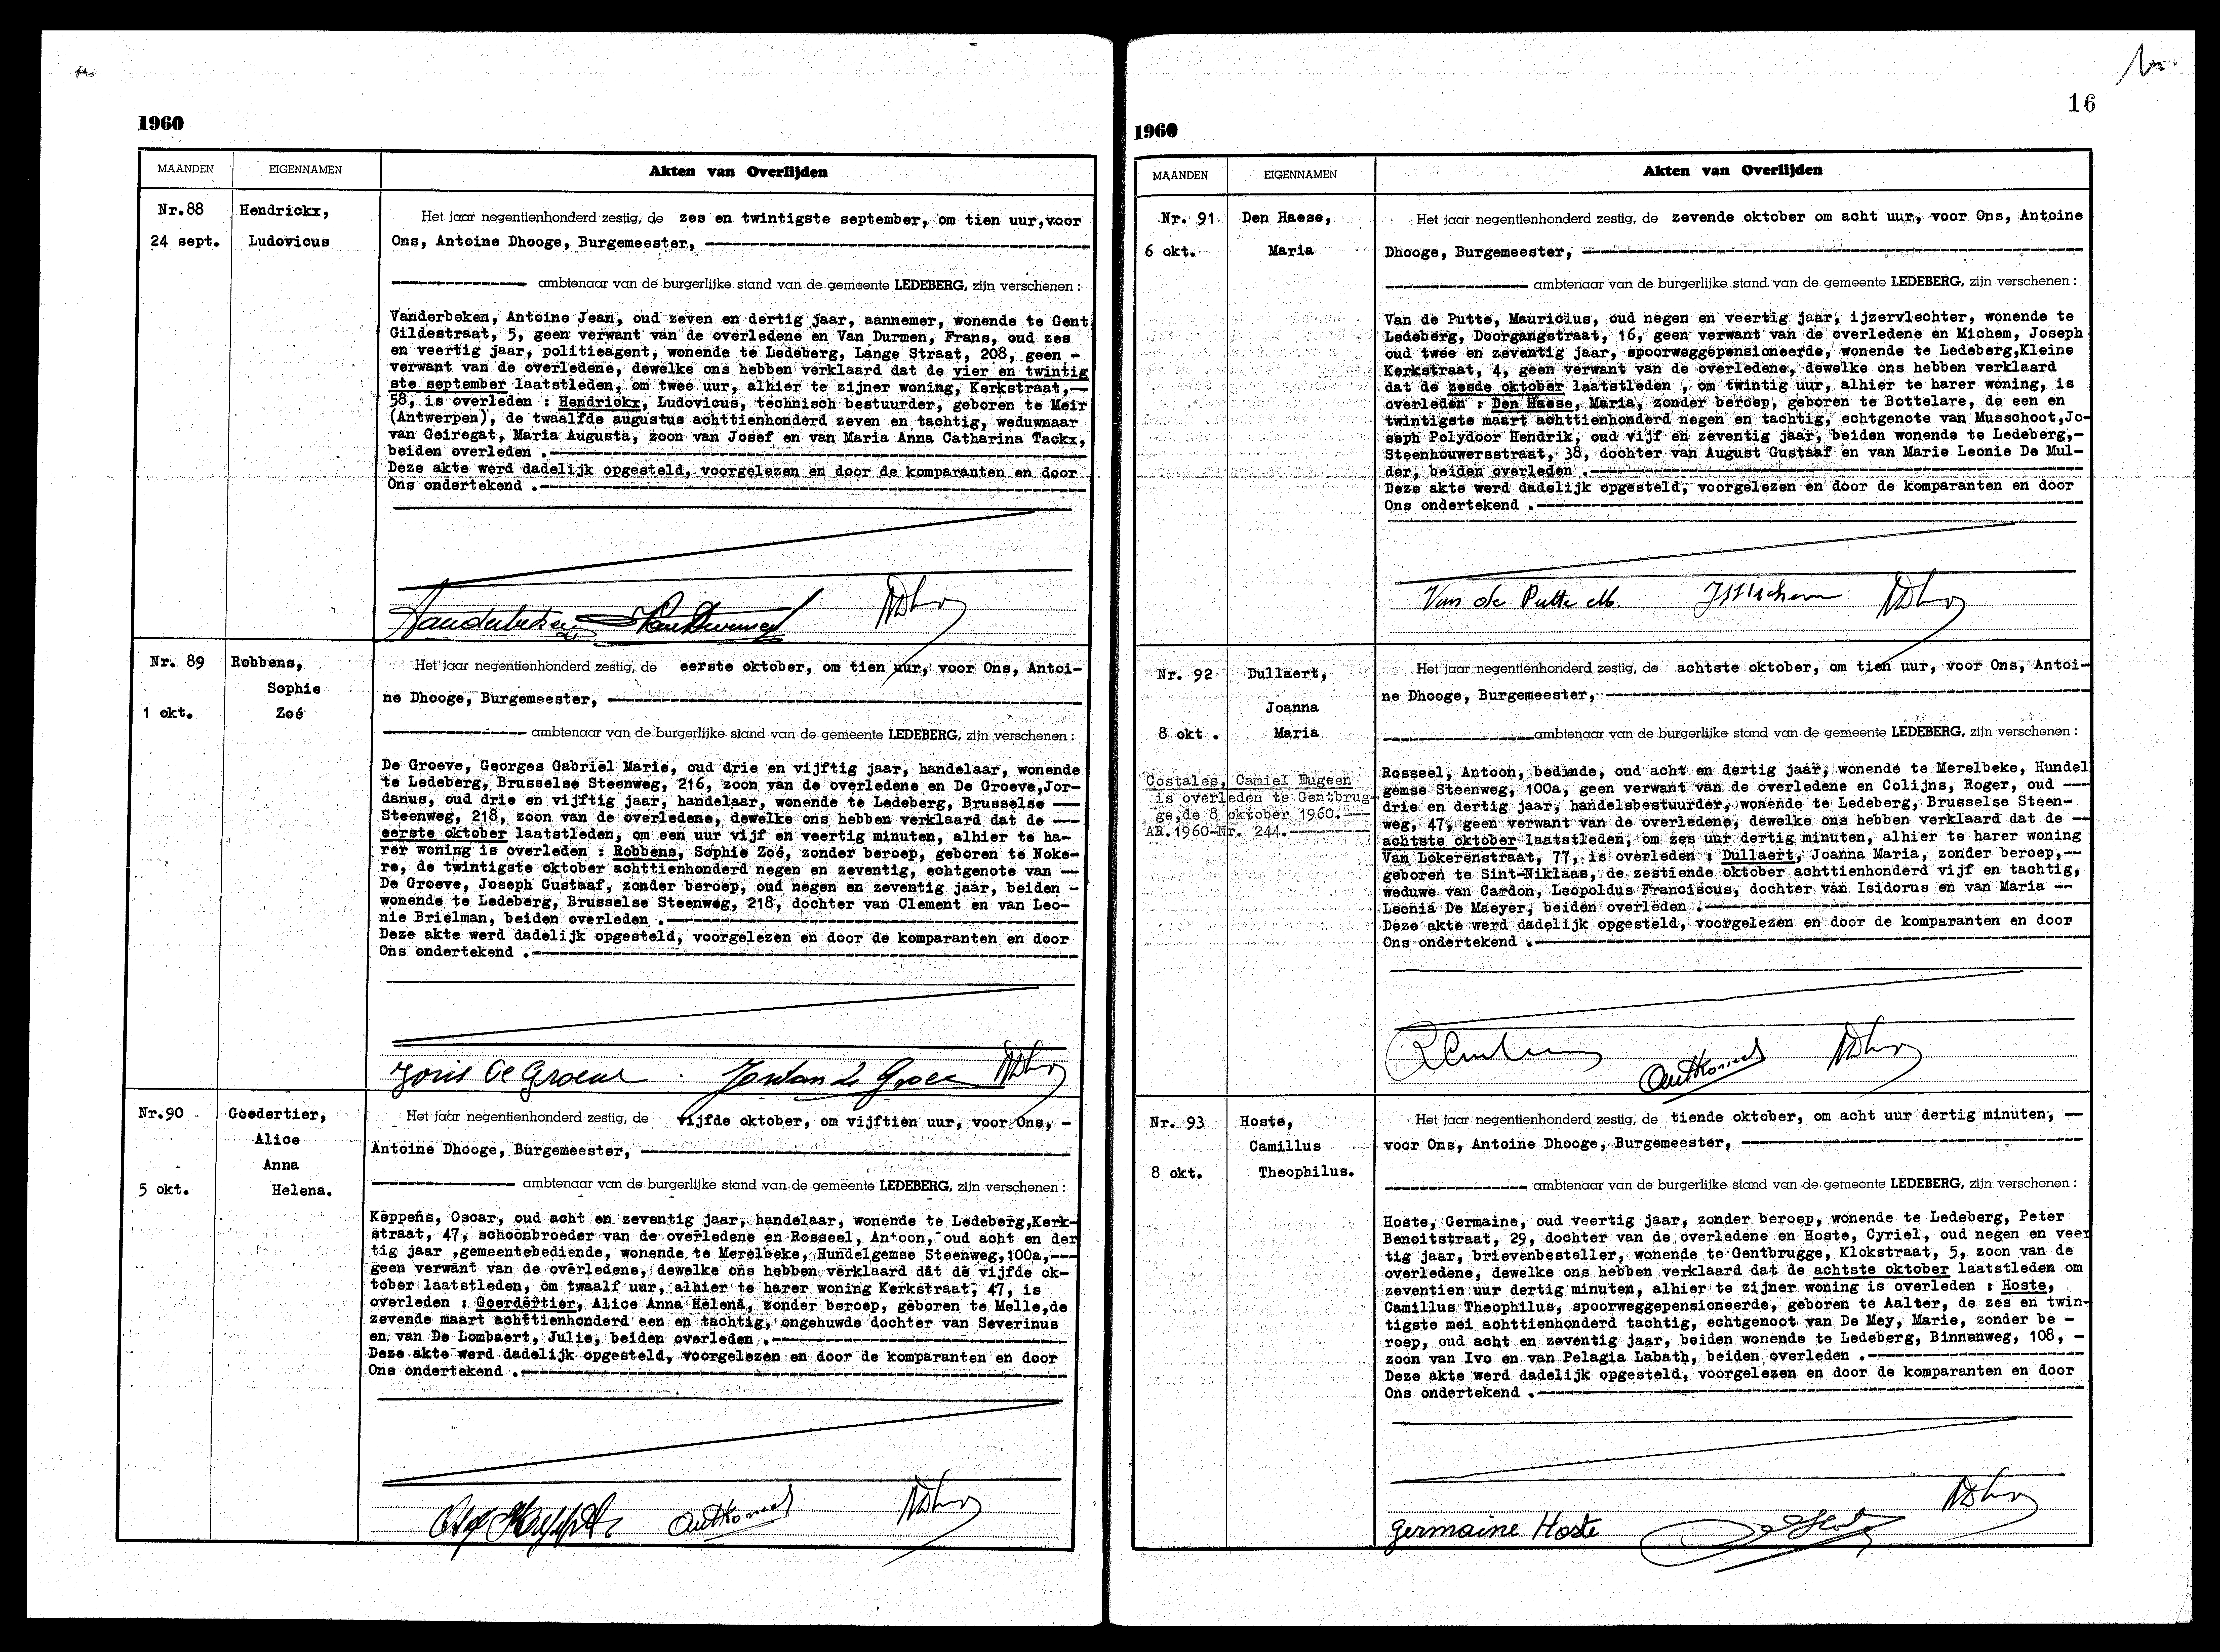 1960
MAANDEN EIGENNAMEN Akten van Overlijden
Nr.88 Hendrickx,
24 sept. Ludovicus
Het jaar negentienhonderd zestig, de zes en twintigste september, om tien uur,voor
Ons, Antoine Dhooge, Burgemeester,
ambtenaar van de burgerlijke stand van de gemeente LEDEBERG, zijn verschenen :
Vanderbeken, Antoine Jean, oud zeven en dertig jaar, aannemer, wonende te Gent
Gildestraat, 5, geen verwant van de overledene en Van Durmen, Frans, oud zes
en veertig jaar, politieagent, wonende te Ledeberg, Lange Straat, 208, geen -
verwant van de overledene, dewelke ons hebben verklaard dat de vier en twintig
ste september laatstleden, om twee uur, alhier te zijner woning, Kerkstraat,--
58, is overleden : Hendrickx, Ludovicus, technisch bestuurder, geboren te Meir
(Antwerpen), de twaalfde augustus achttienhonderd zeven en tachtig, weduwnaar
van Geiregat, Maria Augusta, zoon van Josef en van Maria Anna Catharina Tackx,
beiden overleden .
Deze akte werd dadelijk opgesteld, voorgelezen en door de komparanten en door
Ons ondertekend .
Nr. 89 Robbens,
Sophie
1 okt. Zoé
Het jaar negentienhonderd zestig, de eerste oktober, om tien uur, voor Ons, Antoi-
ne Dhooge, Burgemeester,
ambtenaar van de burgerlijke stand van de gemeente LEDEBERG, zijn verschenen :
De Groeve, Georges Gabriel Marie, oud drie en vijftig jaar, handelaar, wonende
te Ledeberg, Brusselse Steenweg, 216, zoon van de overledene en De Groeve,Jor-
danus, oud drie en vijftig jaar, handelaar, wonende te Ledeberg, Brusselse ---
Steenweg, 218, zoon van de overledene, dewelke ons hebben verklaard dat de ---
eerste oktober laatstleden, om een uur vijf en veertig minuten, alhier te ha-
rer woning is overleden : Robbens, Sophie Zoé, zonder beroep, geboren te Noke-
re, de twintigste oktober achttienhonderd negen en zeventig, echtgenote van ---
De Groeve, Joseph Gustaaf, zonder beroep, oud negen en zeventig jaar, beiden -
wonende te Ledeberg, Brusselse Steenweg, 218, dochter van Clement en van Leo-
nie Brielman, beiden overleden .
Deze akte werd dadelijk opgesteld, voorgelezen en door de komparanten en door
Ons ondertekend .
Nr.90 Goedertier,
Alice
Anna
5 okt. Helena.
Het jaar negentienhonderd zestig, de vijfde oktober, om vijftien uur, voor Ons, -
Antoine Dhooge, Burgemeester,
ambtenaar van de burgerlijke stand van de gemeente LEDEBERG, zijn verschenen :
Keppens, Oscar, oud acht en zeventig jaar, handelaar, wonende te Ledeberg,Kerk-
straat, 47, schoonbroeder van de overledene en Rosseel, Antoon, oud acht en der
tig jaar ,gemeentebediende, wonende te Merelbeke, Hundelgemse Steenweg,100a,---
geen verwant van de overledene, dewelke ons hebben verklaard dat de vijfde ok-
tober laatstleden, om twaalf uur, alhier te harer woning Kerkstraat, 47, is
overleden : Goerdertier, Alice Anna Helena, zonder beroep, geboren te Melle,de
zevende maart achttienhonderd een en tachtig, ongehuwde dochter van Severinus
en van De Lombaert, Julie, beiden overleden .
Deze akte werd dadelijk opgesteld, voorgelezen en door de komparanten en door
Ons ondertekend .
16
1960
MAANDEN EIGENNAMEN Akten van Overlijden
Nr. 91 Den Haese,
6 okt. Maria
Het jaar negentienhonderd zestig, de zevende oktober om acht uur, voor Ons, Antoine
Dhooge, Burgemeester,
ambtenaar van de burgerlijke stand van de gemeente LEDEBERG, zijn verschenen :
Van de Putte, Mauricius, oud negen en veertig jaar, ijzervlechter, wonende te
Ledeberg, Doorgangstraat, 16, geen verwant van de overledene en Michem, Joseph
oud twee en zeventig jaar, spoorweggepensioneerde, wonende te Ledeberg,Kleine
Kerkstraat, 4, geen verwant van de overledene, dewelke ons hebben verklaard
dat de zesde oktober laatstleden , om twintig uur, alhier te harer woning, is
overleden : Den Haese, Maria, zonder beroep, geboren te Bottelare, de een en
twintigste maart achttienhonderd negen en tachtig, echtgenote van Musschoot,Jo-
seph Polydoor Hendrik, oud vijf en zeventig jaar, beiden wonende te Ledeberg,-
Steenhouwersstraat, 38, dochter van August Gustaaf en van Marie Leonie De Mul-
der, beiden overleden .
Deze akte werd dadelijk opgesteld, voorgelezen en door de komparanten en door
Ons ondertekend .
Van de Putte M.
Nr. 92 Dullaert,
Joanna
8 okt . Maria
Costales, Camiel Eugeen
is overleden te Gentbrug-
ge,de 8 oktober 1960.---
AR.1960-Nr. 244.
Het jaar negentienhonderd zestig, de achtste oktober, om tien uur, voor Ons, Antoi-
ne Dhooge, Burgemeester,
ambtenaar van de burgerlijke stand van de gemeente LEDEBERG, zijn verschenen :
Rosseel, Antoon, bediende, oud acht en dertig jaar, wonende te Merelbeke, Hundel
gemse Steenweg, 100a, geen verwant van de overledene en Colijns, Roger, oud ---
drie en dertig jaar, handelsbestuurder, wonende te Ledeberg, Brusselse Steen-
weg, 47, geen verwant van de overledene, dewelke ons hebben verklaard dat de --
achtste oktober laatstleden, om zes uur dertig minuten, alhier te harer woning
Van Lokerenstraat, 77, is overleden : Dullaert, Joanna Maria, zonder beroep,--
geboren te Sint-Niklaas, de zestiende oktober achttienhonderd vijf en tachtig,
weduwe van Cardon, Leopoldus Franciscus, dochter van Isidorus en van Maria --
Leonia De Maeyer, beiden overleden .
Deze akte werd dadelijk opgesteld, voorgelezen en door de komparanten en door
Ons ondertekend .
Nr. 93 Hoste,
Camillus
8 okt. Theophilus.
Het jaar negentienhonderd zestig, de tiende oktober, om acht uur dertig minuten, --
voor Ons, Antoine Dhooge, Burgemeester,
ambtenaar van de burgerlijke stand van de gemeente LEDEBERG, zijn verschenen :
Hoste, Germaine, oud veertig jaar, zonder beroep, wonende te Ledeberg, Peter
Benoitstraat, 29, dochter van de overledene en Hoste, Cyriel, oud negen en veer
tig jaar, brievenbesteller, wonende te Gentbrugge, Klokstraat, 5, zoon van de
overledene, dewelke ons hebben verklaard dat de achtste oktober laatstleden om
zeventien uur dertig minuten, alhier te zijner woning is overleden : Hoste,
Camillus Theophilus, spoorweggepensioneerde, geboren te Aalter, de zes en twin-
tigste mei achttienhonderd tachtig, echtgenoot van De Mey, Marie, zonder be -
roep, oud acht en zeventig jaar, beiden wonende te Ledeberg, Binnenweg, 108, -
zoon van Ivo en van Pelagia Labath, beiden overleden .
Deze akte werd dadelijk opgesteld, voorgelezen en door de komparanten en door
Ons ondertekend .
germaine Hoste